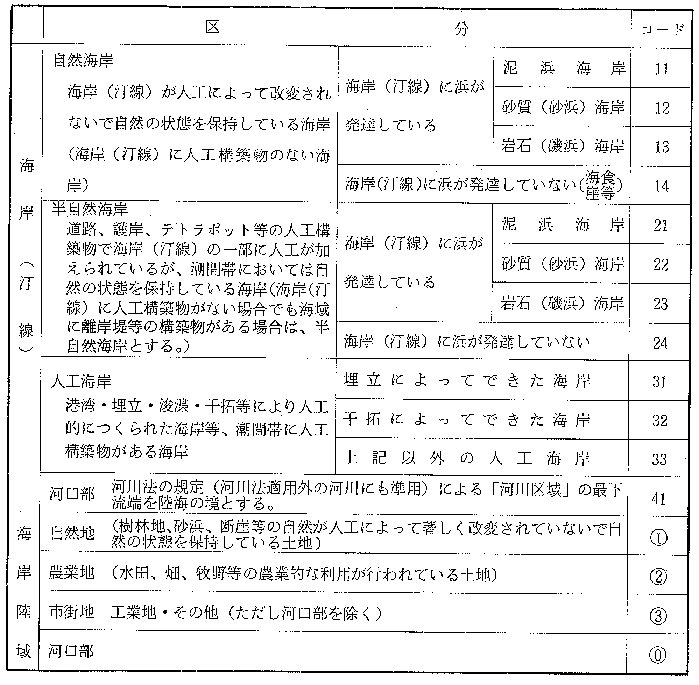 区 分 コード
海岸（汀線）
自然海岸
海岸（汀線）が人工によって改変され
ないで自然の状態を保持している海岸
(海岸（汀線）に人工構築物のない海
岸）
海岸（汀線）に浜が
発達している
泥浜海岸 11
砂質（砂浜）海岸 12
岩石（磯浜）海岸 13
海岸(汀線)に浜が発達していない(海食崖等) 14
半自然海岸
道路、護岸、テトラポット等の人工構
築物で海岸（汀線）の一部に人工が加
えられているが、潮間帯においては自
然の状態を保持している海岸(海岸(汀
線）に人工構築物がない場合でも海域
に離岸堤等の構築物がある場合は、半
自然海岸とする。）
海岸（汀線）に浜が
発達している
泥浜海岸 21
砂質（砂浜）海岸 22
岩石（磯浜）海岸 23
海岸（汀線）に浜が発達していない 24
人工海岸
港湾・埋立・浚渫・干拓等により人工
的につくられた海岸等、潮間帯に人工
構築物がある海岸
埋立によってできた海岸 31
干拓によってできた海岸 32
上記以外の人工海岸 33
河口部 河川法の規定（河川法適用外の河川にも準用）による「河川区域」の最下
流端を陸海の境とする。 41
海岸陸域
自然地 （樹林地、砂浜、断崖等の自然が人工によって著しく改変されていないで自
然の状態を保持している土地） ①
農業地 （水田、畑、牧野等の農業的な利用が行われている土地） ②
市街地 工業地・その他（ただし河口部を除く） ③
河口部 ⓪